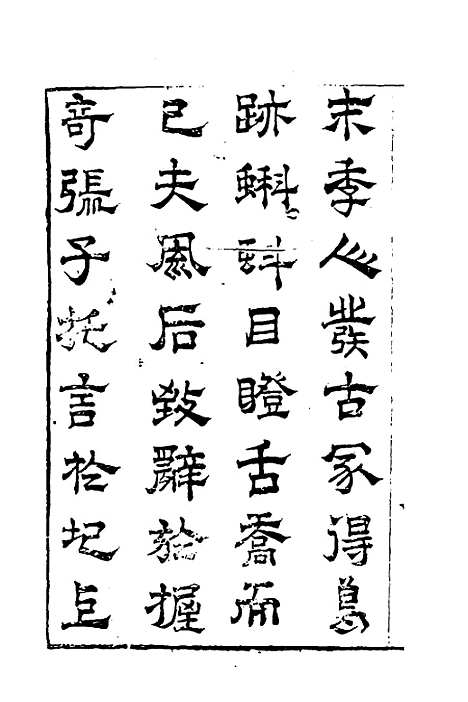 末季人發古冢得鳥
跡蝌蚪目瞪舌喬而
已夫風后致辭於握
奇張子托言於圯上